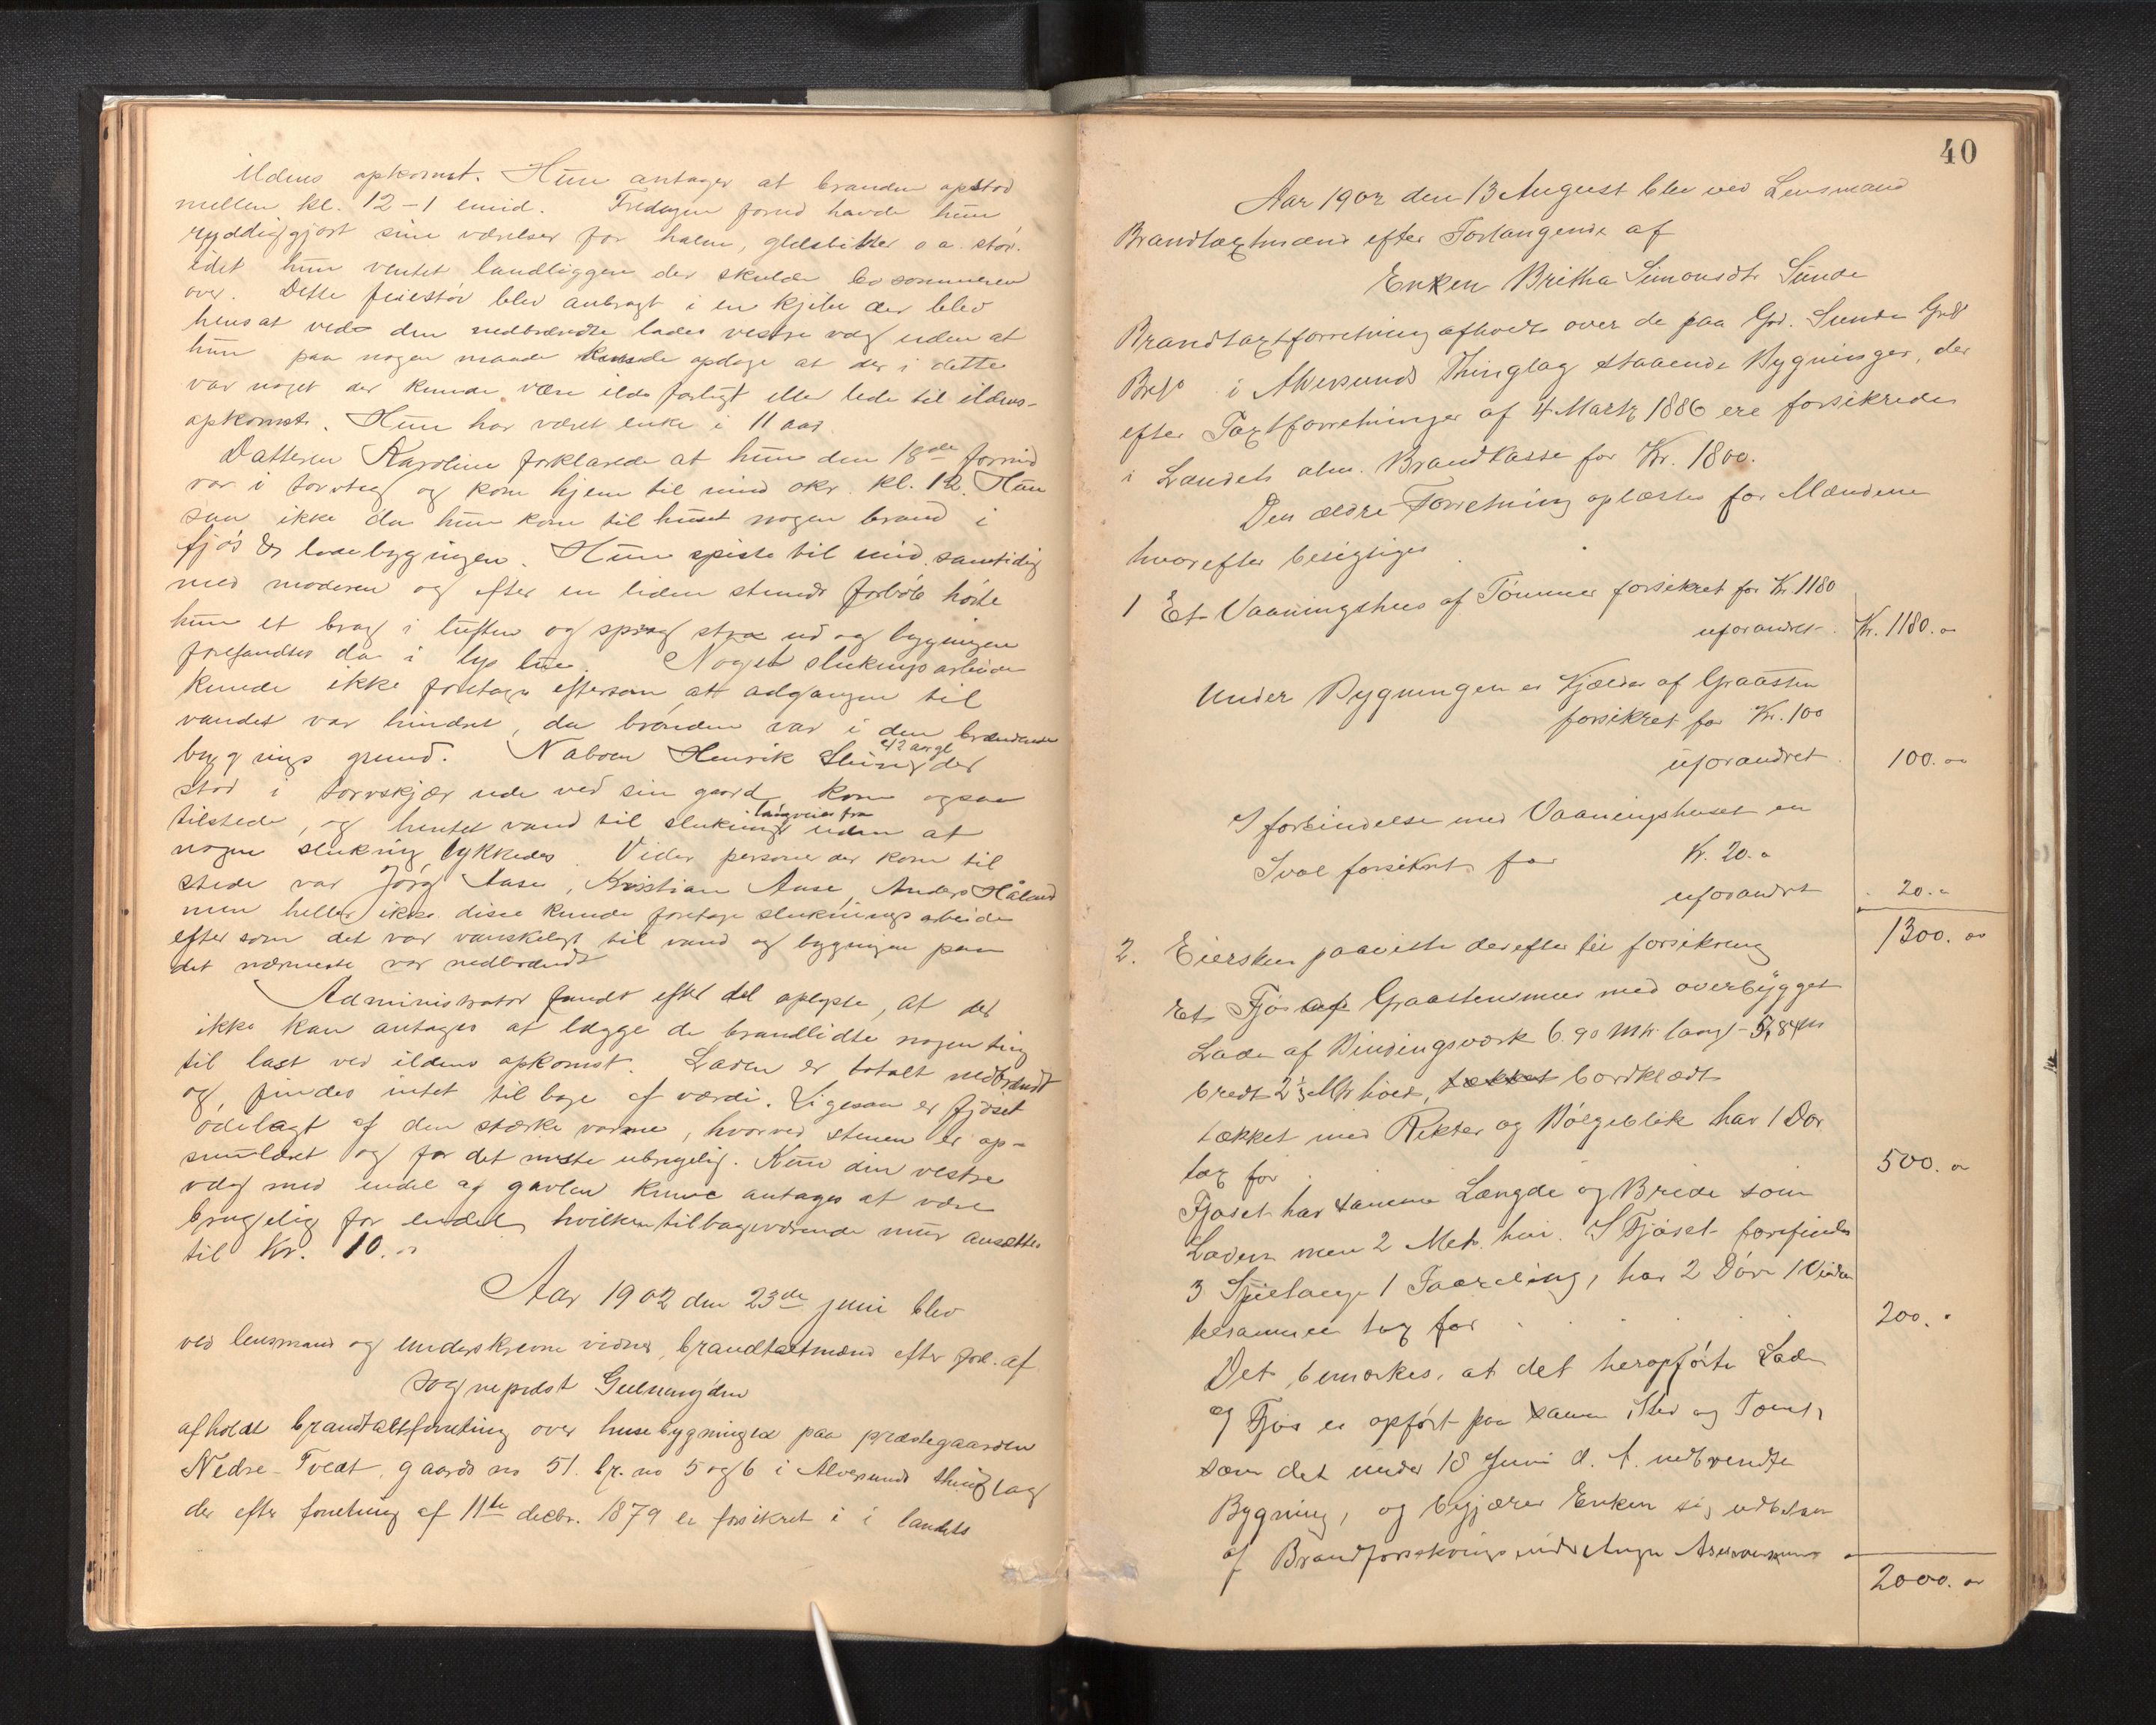 ildens opkomst. Hun antager at branden opstod
mellem kl. 12 – 1 emid. Fredagen forud havde hun
ryddiggjort sine værelser for halm, glasbitter o a. støv.
idet hun ventet landliggere der skulde bo sommeren
over. Dette feiestøv blev anbragt i en kjibe der blev
hensat ved den nedbrændte lades vestre væg uden at
hun paa nogen maade kunde opdage at der i dette
var noget der kunde være ildsfarligt eller lede til ildens-
opkomst. Hun har været enke i 11 aar.
Datteren Karoline forklarede at hun den 18de formid
var i torvtag og kom hjem til mid okr. kl. 12. Hun
saa ikke da hun kom til huset nogen brand i
fjøs & ladebygningen. Hun spiste til mid samtidig
med moderen og efter en liden stunds forløb hørte
hun et brag i luften og sprag strax ud og bygningen
forefandtes da i lys lue. Noget slukningsarbeide
kunde ikke foretages eftersom at adgangen til
vandet var hindret, da brønden var i den brændende
bygnings grund. Naboen Henrik 42 aar gl. der
stod i torvskjær ude ved sin gaard kom ogsaa
tilstede, og hentet vand til slukning langveiesfra uden at
nogen slukning lykkedes. Vider personer der kom til
stede var Jørg Aase, Kristian Aase, Anders Håland
men heller ikke disse kunde foretage slukningsarbeide
eftersom det var vanskeligt til vand og bygningen paa
det nærmeste var nedbrændt
Administrator fandt efter det oplyste, at det
ikke kan antages at lægge de brandlidte nogen ting
til last ved ildens opkomst. Laden er totalt nedbrændt
og findes intet tilbage af værdi. Ligesaa er fjøset
ødelagt af den stærke varme, hvorved stenen er op-
smuldret og for det meste ubrugelig. Kun den vestre
væg med endel af gavlen kunde antages at være
brugelig for endel, hvilken tilbageværende mur ansættes
til Kr. 10.
Aar 1902 den 23de juni blev
ved lensmand og underskrevne vidner, brandtaktmænd efter forl. af
sognepræst
afholdt brandtaktforretning over husebygningerne paa præstegaarden
Nedre-Tvedt, gaards no 51. br. no 5 og 6 i Alversunds thinglag
der efter forretning af 11te decbr. 1879 er forsikret i i landets
40
Aar 1902 den 13 August blev ved Lensmand
Brandtaxtmænd efter Forlangende af
Enken Britha Simonsdtr Sunde
Brandtaxtforretning afholdt over de paa Grd. Sunde Gno
Bno i Alversunds Thinglag staaende Bygninger, der
efter Taxtforretninger af 4 Marts 1886 ere forsikrede
i Landets alm. Brandkasse for Kr. 1800.
Den ældre Forretning oplæstes for Mændene
hvorefter besigtiges
1 Et Vaaningshus af Tømmer forsikret for Kr 1180
uforandret. Kr. 1180.
Under Bygningen er Kjælder af Graasten
forsikret for Kr. 100
uforandret. 100.
I forbindelse med Vaaningshuset en
Sval forsikret for Kr. 20.
uforandret 20.
1300.
2. Eiersken paaviste derefter til forsikring
Et Fjøs af Graastensmur med overbygget
Lade af Bindingsværk 6.90 Mtr. langt – 5,84 m
bredt 2 1/3 Mtr høit, tækket bordklædt
tækket med Rekter og Bølgeblik har 1 Dør
tax for 500.
Fjøset har samme Længde og Brede som
Laden men 2 Metr. høi. I Fjøset forefindes
3 1 Faareling, har 2 Døre 1 Vindu
tilsammen tax for 200.
Det bemærkes, at det heropførte Lade
og Fjøs er opført paa samme Sted og Tomt,
som det under 18 Juni d. A. nedbrendte
Bygning, og begjærer Enken sig udbetalt
af
2000.